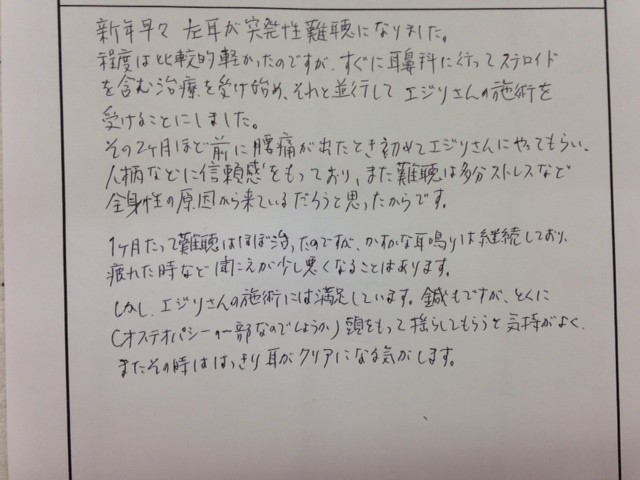 新年早々 左耳が突発性難聴になりました。
程度は比較的軽かったのですが、すぐに耳鼻科に行ってステロイド
を含む治療を受け始め、それと並行して エジリさんの施術を
受けることにしました。
その2ヶ月ほど前に腰痛が出たとき初めてエジリさんにやってもらい、
人柄などに信頼感をもっており、また難聴は多分ストレスなど
全身性の原因から来ているだろうと思ったからです。
1ヶ月たって難聴はほぼ治ったのですが、かすかな耳鳴りは継続しており、
疲れた時など聞こえが少し悪くなることはあります。
しかし、エジリさんの施術には満足しています。鍼もですが、とくに
(オステオパシーの一部なのでしょうか)頭をもって揺らしてもらうと気持がよく、
またその時ははっきり耳がクリアになる気がします。